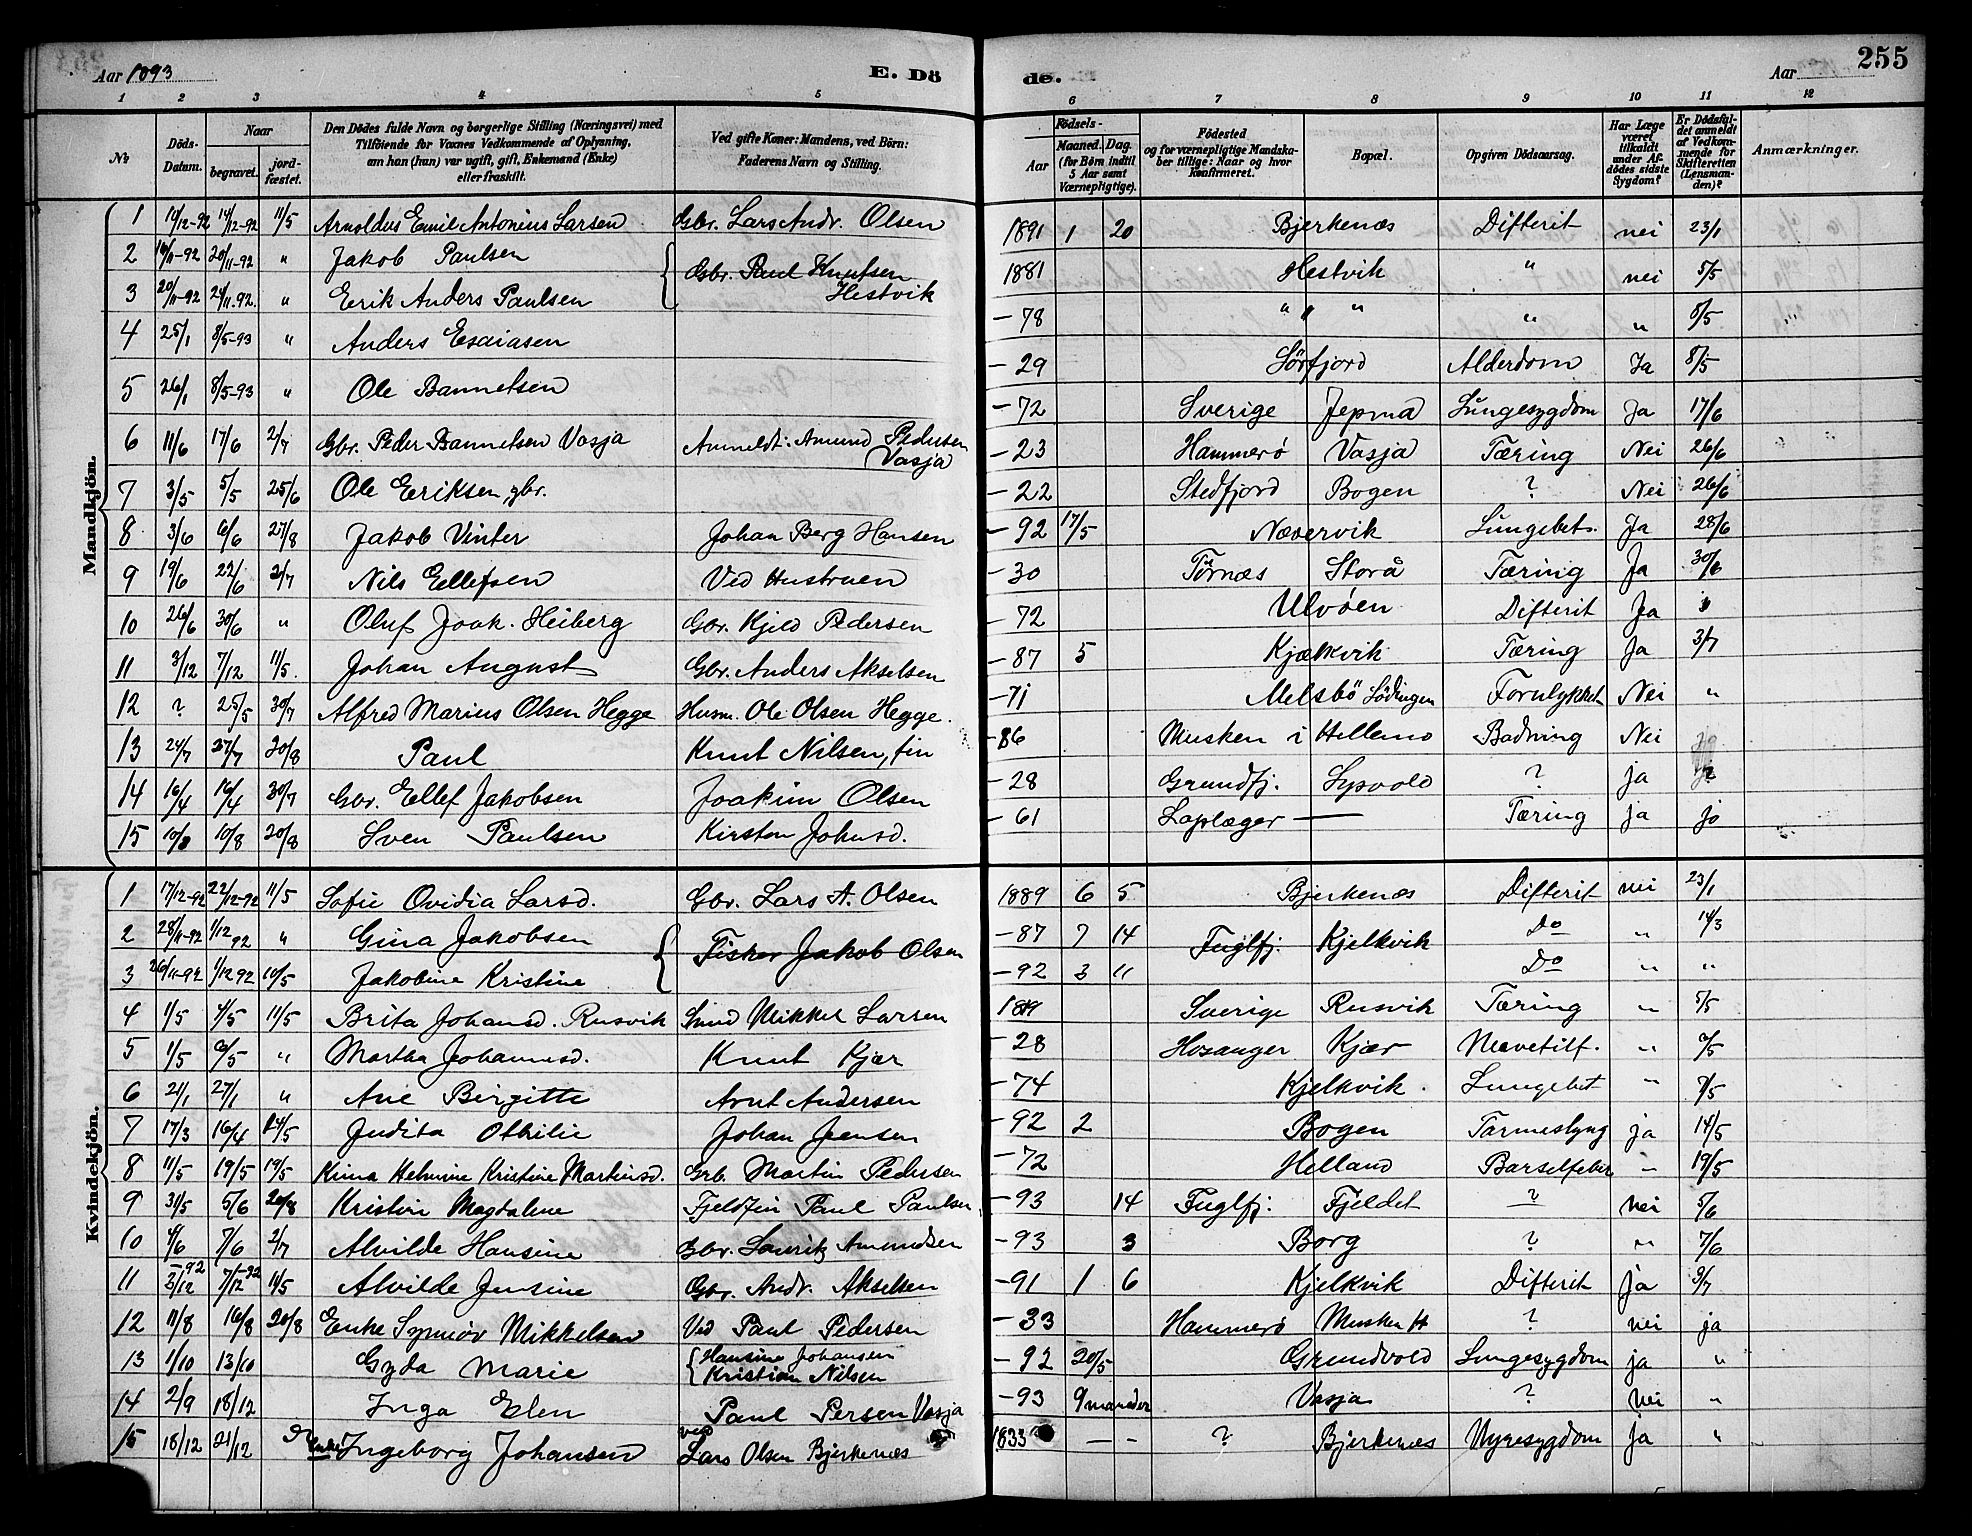 Aar 1893 E. Dö de. Aar 255
1 2 3 4 5 6 7 8 9 10 11 12
No Döds-Datum. Naar begravet. jord-fæstet. Den Dödes fulde Navn og borgerlige Stilling (Næringsvei) med Tilföiende for Voxnes Vedkommende af Oplysning, om han (hun) var ugift, gift, Enkemand (Enke) eller fraskilt. Ved gifte Koner: Mandens, ved Börn: Faderens Navn og Stilling. Födsels- Aar Maaned. Dag. (for Börn indtil 5 Aar samt Værnepligtige). Födested og for værnepligtige Mandskaber tillige: Naar og hvor konfirmeret. Bopæl. Opgiven Dödsaarsag. Har Læge været tilkaldt under Afdödes sidste Sygdom? Er Dödsfaldet anmeldt af Vedkommende for Skifteretten (Lensmanden)? Anmærkninger.
Mandkjön.
1 10/12-92 14/12-92 11/5 Arnoldus Emil Antonius Larsen Gbr. Lars Andr. Olsen 1891 1 20 Bjerkenæs Difterit nei 23/1
2 16/11-92 20/11-92 " Jakob Paulsen Gbr. Paul Knutsen Hestvik 1881 Hestvik " nei 5/5
3 20/11-92 24/11-92. " Erik Anders Paulsen -78 " " " " 5/5
4 25/1 8/5-93 " Anders Esaiasen -29 Sörfjord Alderdom Ja 8/5
5 26/1 8/5-93 " Ole Bannetsen -72 Sverige Jepma Lungesygdom Ja 17/6
6 11/6 17/6 2/7 Gbr. Peder Bannetsen Vasja Anmeldt: Amund Pedersen Vasja -23 Hammerø Vasja Tæring Nei 26/6
7 3/5 5/5 25/6 Ole Eriksen, gbr. -22 Stedfjord Bogen ? Nei 26/6
8 3/6 6/6 27/8 Jakob Vinter Johan Berg Hansen -92 17/5 Nævervik Lungebet. Ja 28/6
9 19/6 22/6 2/7 Nils Ellefsen Ved Hustruen -30 Törnæs Storå Tæring Ja 30/6
10 26/6 30/6 " Oluf Joak. Heiberg Gbr. Kjeld Pedersen -72 Ulvöen Difterit Ja
11 3/12 7/12 11/5. Johan August Gbr. Anders Akselsen -87 5 Kjælkvik Tæring Ja 3/7
12 ? 25/5 30/7 Alfred Marius Olsen Hegge Husm. Ole Olsen Hegge. -71 Melsbö Lödingen Forulykket Nei "
13 24/7 27/7 20/8 Paul Knut Nilsen, fin -86 Musken i Hellemo Badning Nei
14 16/4 16/4 30/7 Gbr. Ellef Jakobsen Joakim Olsen -28 Grundfj. Sypvold ? ja ja
15 10/8 10/8 20/8 Sven Paulsen Kirsten Johnsd. -61 Laplæger — Tæring ja ja
Kvindekjön.
1 17/12-92 22/12-92 11/5 Sofie Ovidia Larsd. Gbr. Lars A. Olsen 1889 6 5 Bjerkenæs Difterit nei 23/1
2 28/11-92 1/12 92 " Gina Jakobsen Fisker Jakob Olsen -87 7 14 Fuglfj. Kjelkvik Do " 14/3
3 26/11-92 1/12 92 10/5 Jakobine Kristine -92 3 11 Do " "
4 1/5 4/5 11/5 Brita Johansd. Rusvik Smed Mikkel Larsen 1819 Sverige Rusvik Tæring " 5/5
5 1/5 6/5 " Martha Johannesd. Knut Kjær -28 Hosanger Kjær Mavetilf. " 6/5
6 21/1 27/1 " Ane Birgitte Arnt Andersen -74 Kjelkvik. Lungebet " 7/5
7 17/3 16/4 14/5 Judita Othilie Johan Jensen -92 2 Bogen Tarmeslyng ja 14/5
8 11/5 19/5 19/5 Krina Helmine Kristine Martinsd. Grb. Martin Pedersen -72 Helland Barselfeber " 19/5
9 31/5 5/6 20/8 Kristin Magdalene Fjeldfin Paul Paulsen -93 14 Fuglfj. Fjeldet ? nei 5/6
10 4/6 7/6 2/7 Alvilde Hansine Gbr. Lauritz Amundsen -93 3 Borg ? " 7/6
11 3/12 -92 7/12 -92 11/5 Alvilde Jensine Gbr. Andr. Akselsen -91 1 6 Kjelkvik Difterit ja 3/7
12 11/8 16/8 20/8 Enke Synnöv Mikkelsen Ved Paul Pedersen -33 Hammerø Musken H ? nei ja
13 1/10 13/10 Gyda Marie Hansine Johansen Kristian Nilsen -92 20/5 Grundvold Lungesygdom ja "
14 2/9 18/12 Inga Elen Paul Persen Vasja -93 9 maaneder Vasja ? nei "
15 18/12 21/12 Enke Ingeborg Johansen ved Lars Olsen Bjerkenæs 1833 - - ? Bjerkenæs Nyresygdom ja "